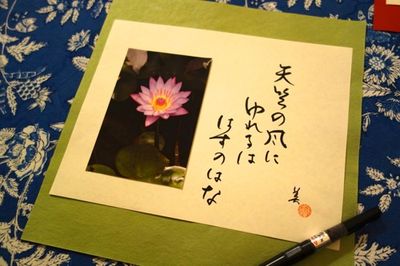 天竺の風に
ゆれてるは
はすのはな
美